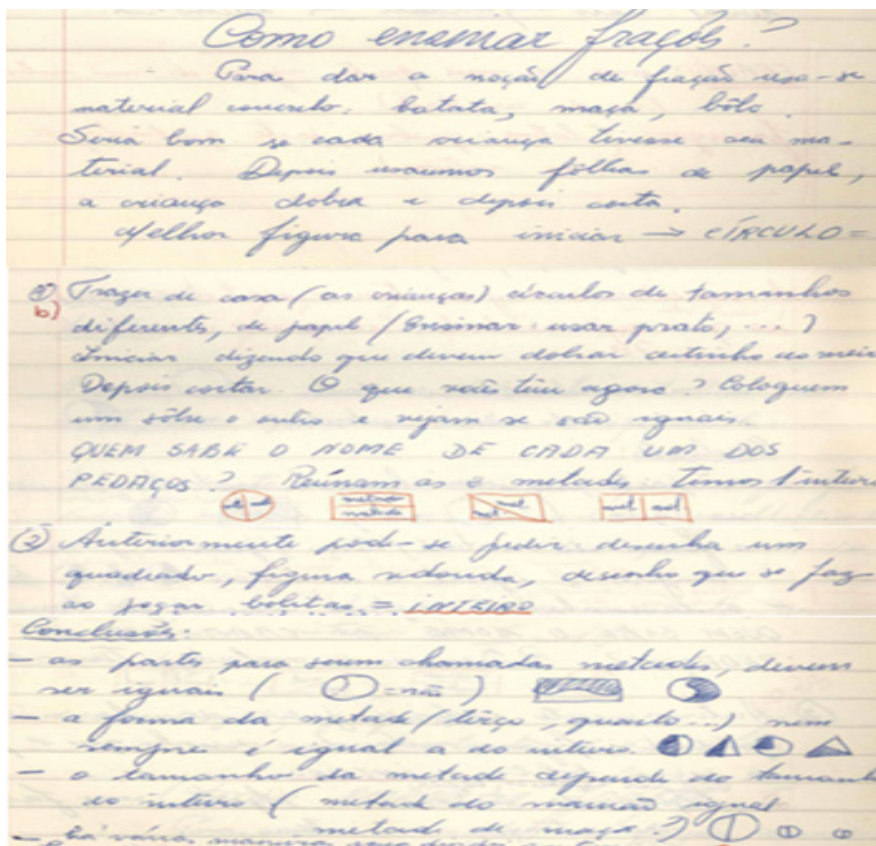 Como ensinar frações?
Para dar a noção de fração usa-se
material concreto: batata, maçã, bôlo.
Seria bom se cada criança tivesse seu ma-
terial. Depois usaumos fôlhas de papel,
a criança dobra e depois corta.
Melhor figura para iniciar → CÍRCULO =
b) Trazer de casa (as crianças) círculos de tamanhos
diferentes, de papel (Ensinar: usar prato, ...)
Iniciar dizendo que devem dobrar certinho no meio
Depois cortar. O que vocês têm agora? Coloquem
um sôbre o outro e vejam se são iguais.
QUEM SABE O NOME DE CADA UM DOS
PEDAÇOS? Reúnam as metades. Temos 1 inteiro
met met metade metade met met met met
2) Anteriormente pode-se pedir: desenha um
quadrado, figura redonda, desenho que se faz
ao jogar bolitas = INTEIRO
Conclusões:
- as partes para serem chamadas metades, devem
ser iguais ( = não )
- a forma da metade (têrço, quarto...) nem
sempre é igual a do inteiro.
- o tamanho da metade depende do tamanh
do inteiro (metade do mamão igual
metade de maçã?)
- há várias maneiras